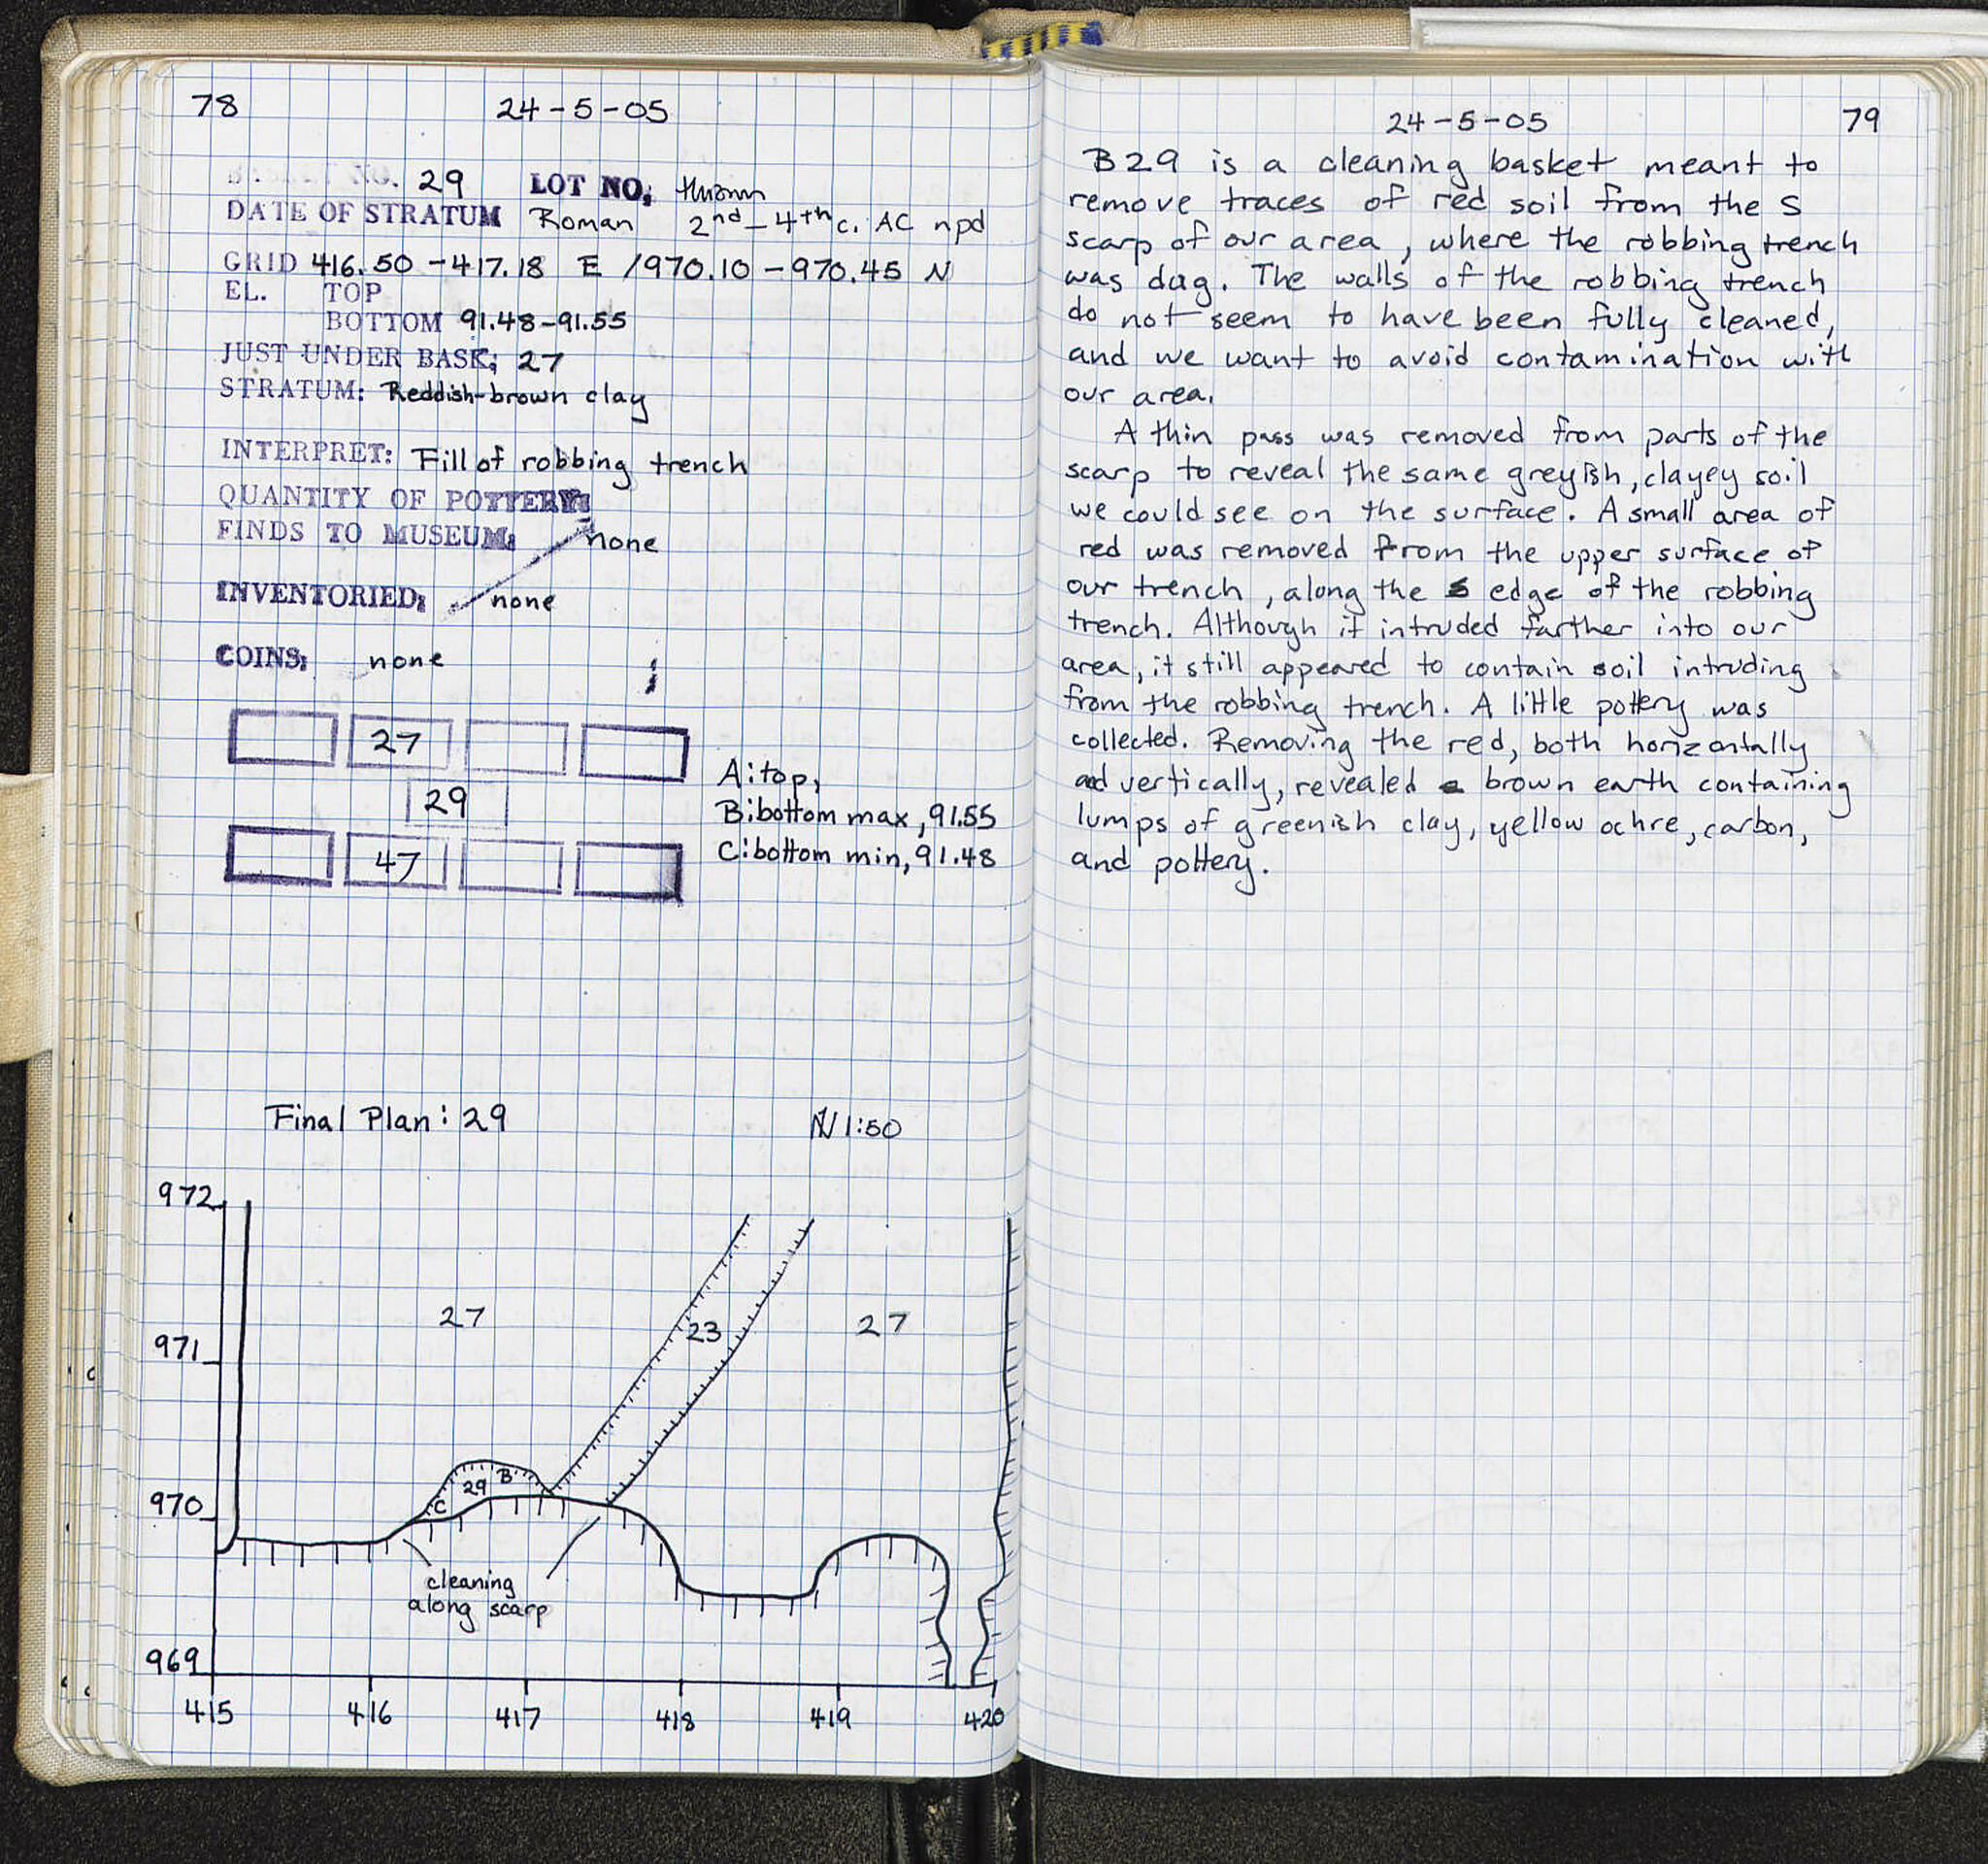 78
24-5-05
BASKET NO. 29 LOT NO; thrown
DATE OF STRATUM Roman 2nd-4th c. AC npd
GRID 416.50-417.18 E /970.10-970.45 N
EL. TOP
BOTTOM 91.48-91.55
JUST UNDER BASK; 27
STRATUM: Reddish-brown clay
INTERPRET: Fill of robbing trench
QUANTITY OF POTTERY:
FINDS TO MUSEUM: none
INVENTORIED: none
COINS: none
27
29
47
A: top,
B: bottom max, 91.55
C: bottom min, 91.48
Final Plan: 29
N 1:50
972
971
970
969
27
23
27
29
B
C
cleaning
along scarp
415 416 417 418 419 420
24-5-05
79
B29 is a cleaning basket meant to
remove traces of red soil from the S
scarp of our area, where the robbing trench
was dug. The walls of the robbing trench
do not seem to have been fully cleaned,
and we want to avoid contamination with
our area.
A thin pass was removed from parts of the
scarp to reveal the same greyish, clayey soil
we could see on the surface. A small area of
red was removed from the upper surface of
our trench, along the S edge of the robbing
trench. Although it intruded farther into our
area, it still appeared to contain soil intruding
from the robbing trench. A little pottery was
collected. Removing the red, both horizontally
and vertically, revealed a brown earth containing
lumps of greenish clay, yellow ochre, carbon,
and pottery.